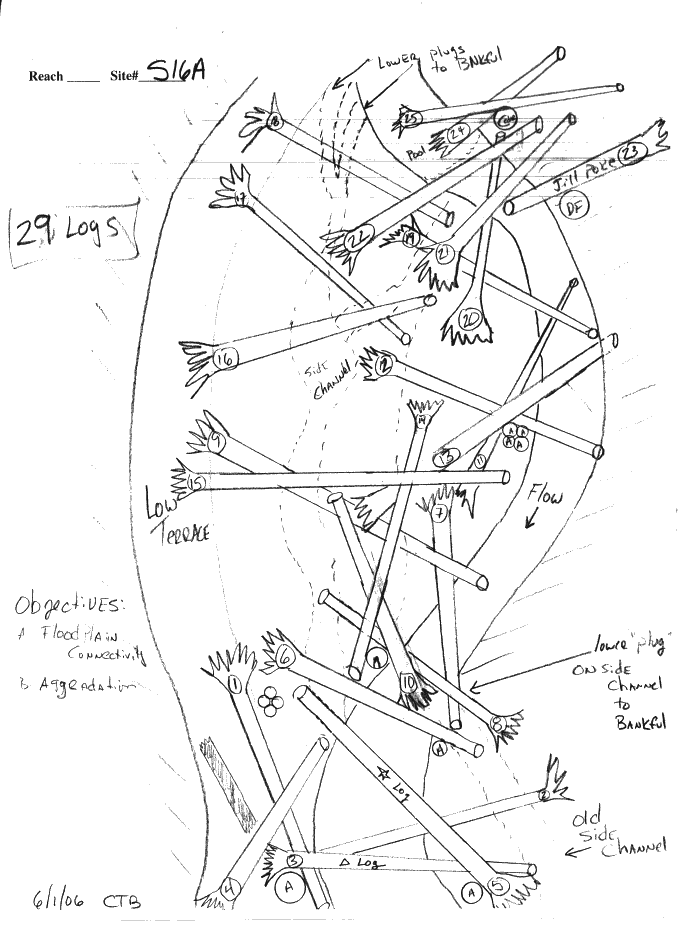 LOWER plugs
to BNKful
Reach _____ Site# S16A
25
24
Pool
18
Jill Poke 23
DF
17
29 LOGS
22
19
21
20
16
Side
Channel
12
14
9
13
11
A A
A A
15
7
Flow
Low
Terrace
Objectives:
A FloodPlain
Connectivity
B Aggradation
lowre "plug"
ON SIDE
Channel
to
BANKful
6
A
1
10
8
A
☆ Log
2
Old
Side
Channel
3
△ Log
4
A
A
5
6/1/06 CTB